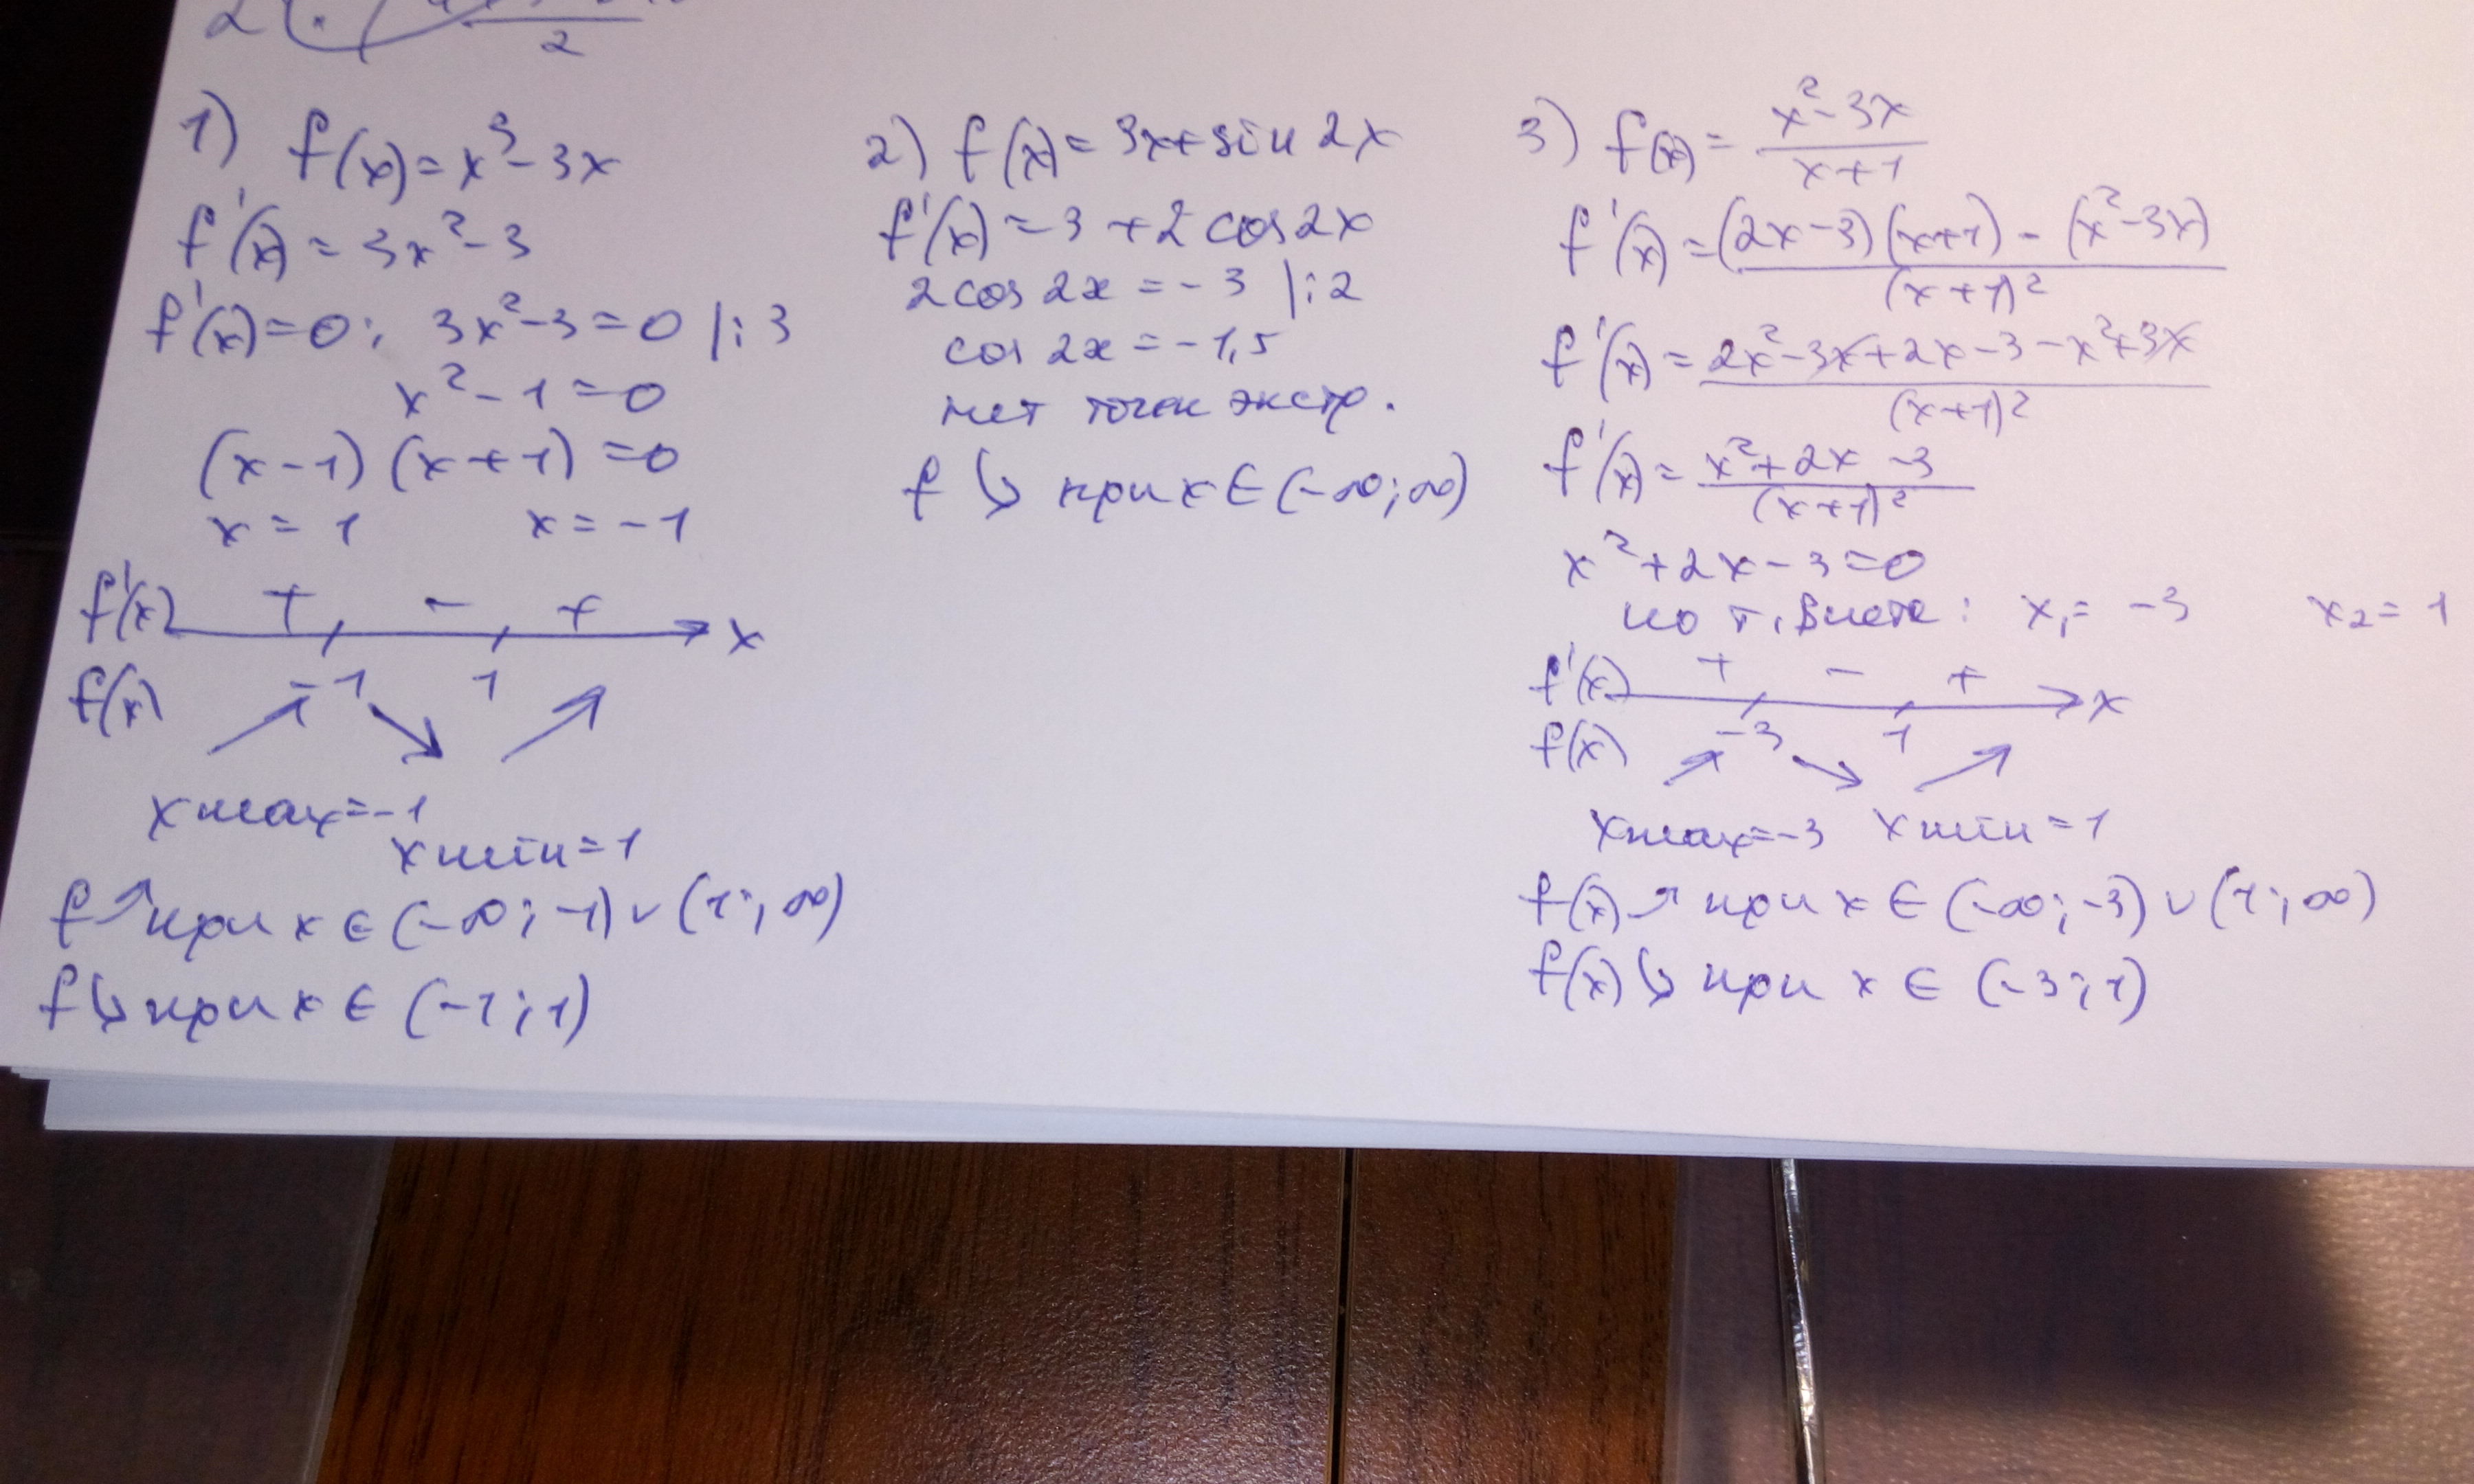 2
1) f(x)=x³-3x
f'(x)=3x²-3
f'(x)=0; 3x²-3=0 |:3
x²-1=0
(x-1)(x+1)=0
x=1 x=-1
f'(x) + - + x
f(x) -1 1
xmax=-1
xmin=1
f↗при x∈(-∞;-1)∪(1;∞)
f↘при x∈(-1;1)
2) f(x)=3x+sin2x
f'(x)=3+2cos2x
2cos2x=-3 |:2
cos2x=-1,5
нет точек экстр.
f ↘ при x∈(-∞;∞)
3) f(x)=(x²-3x)/(x+1)
f'(x)=((2x-3)(x+1)-(x²-3x))/(x+1)²
f'(x)=(2x²-3x+2x-3-x²+3x)/(x+1)²
f'(x)=(x²+2x-3)/(x+1)²
x²+2x-3=0
по т. Виета: x₁=-3 x₂=1
f'(x) + - + x
f(x) -3 1
xmax=-3 xmin=1
f(x)↗ при x∈(-∞;-3)∪(1;∞)
f(x)↘ при x∈(-3;1)